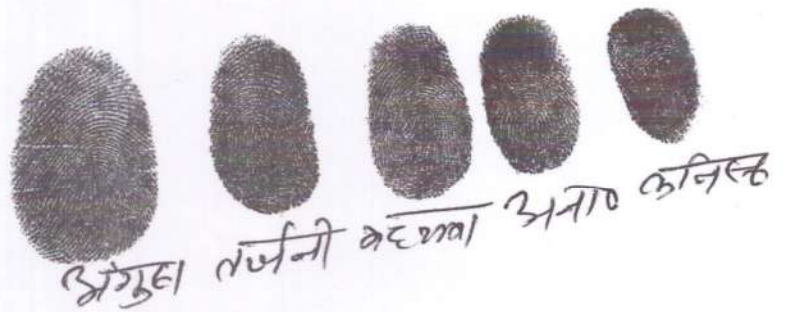 अंगुठा तर्जनी मध्यमा अनाo कनिष्ठ